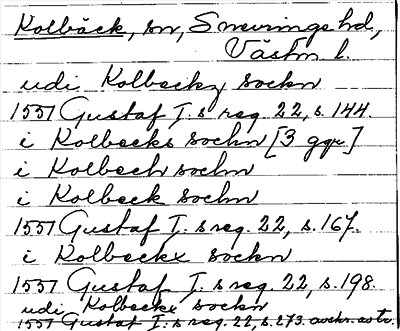 Kolbäck, sn, Snevringe hd,
Västm l.
udi Kolbecky sockn
1551 Gustaf I.s reg. 22, s. 144.
i Kolbecks sochn [3 ggr]
i Kolbech sochn
i Kolbeck sochn
1551 Gustaf I. s reg. 22, s. 167.
i Kolbeckx sochn
1551 Gustaf I. s reg. 22, s. 198.
udi Kolbeckx sochn
1551 Gustaf I. s reg. 22, s. 273. avskr. avtr.